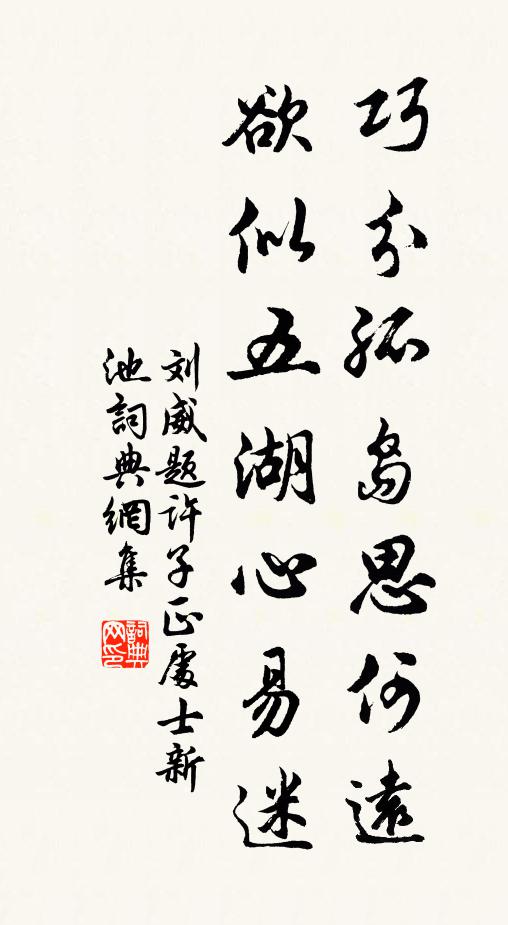 巧分孤岛思何遠
欲似五湖心易迷
刘威题许子正處士新
池詞典網集
詞典
网印